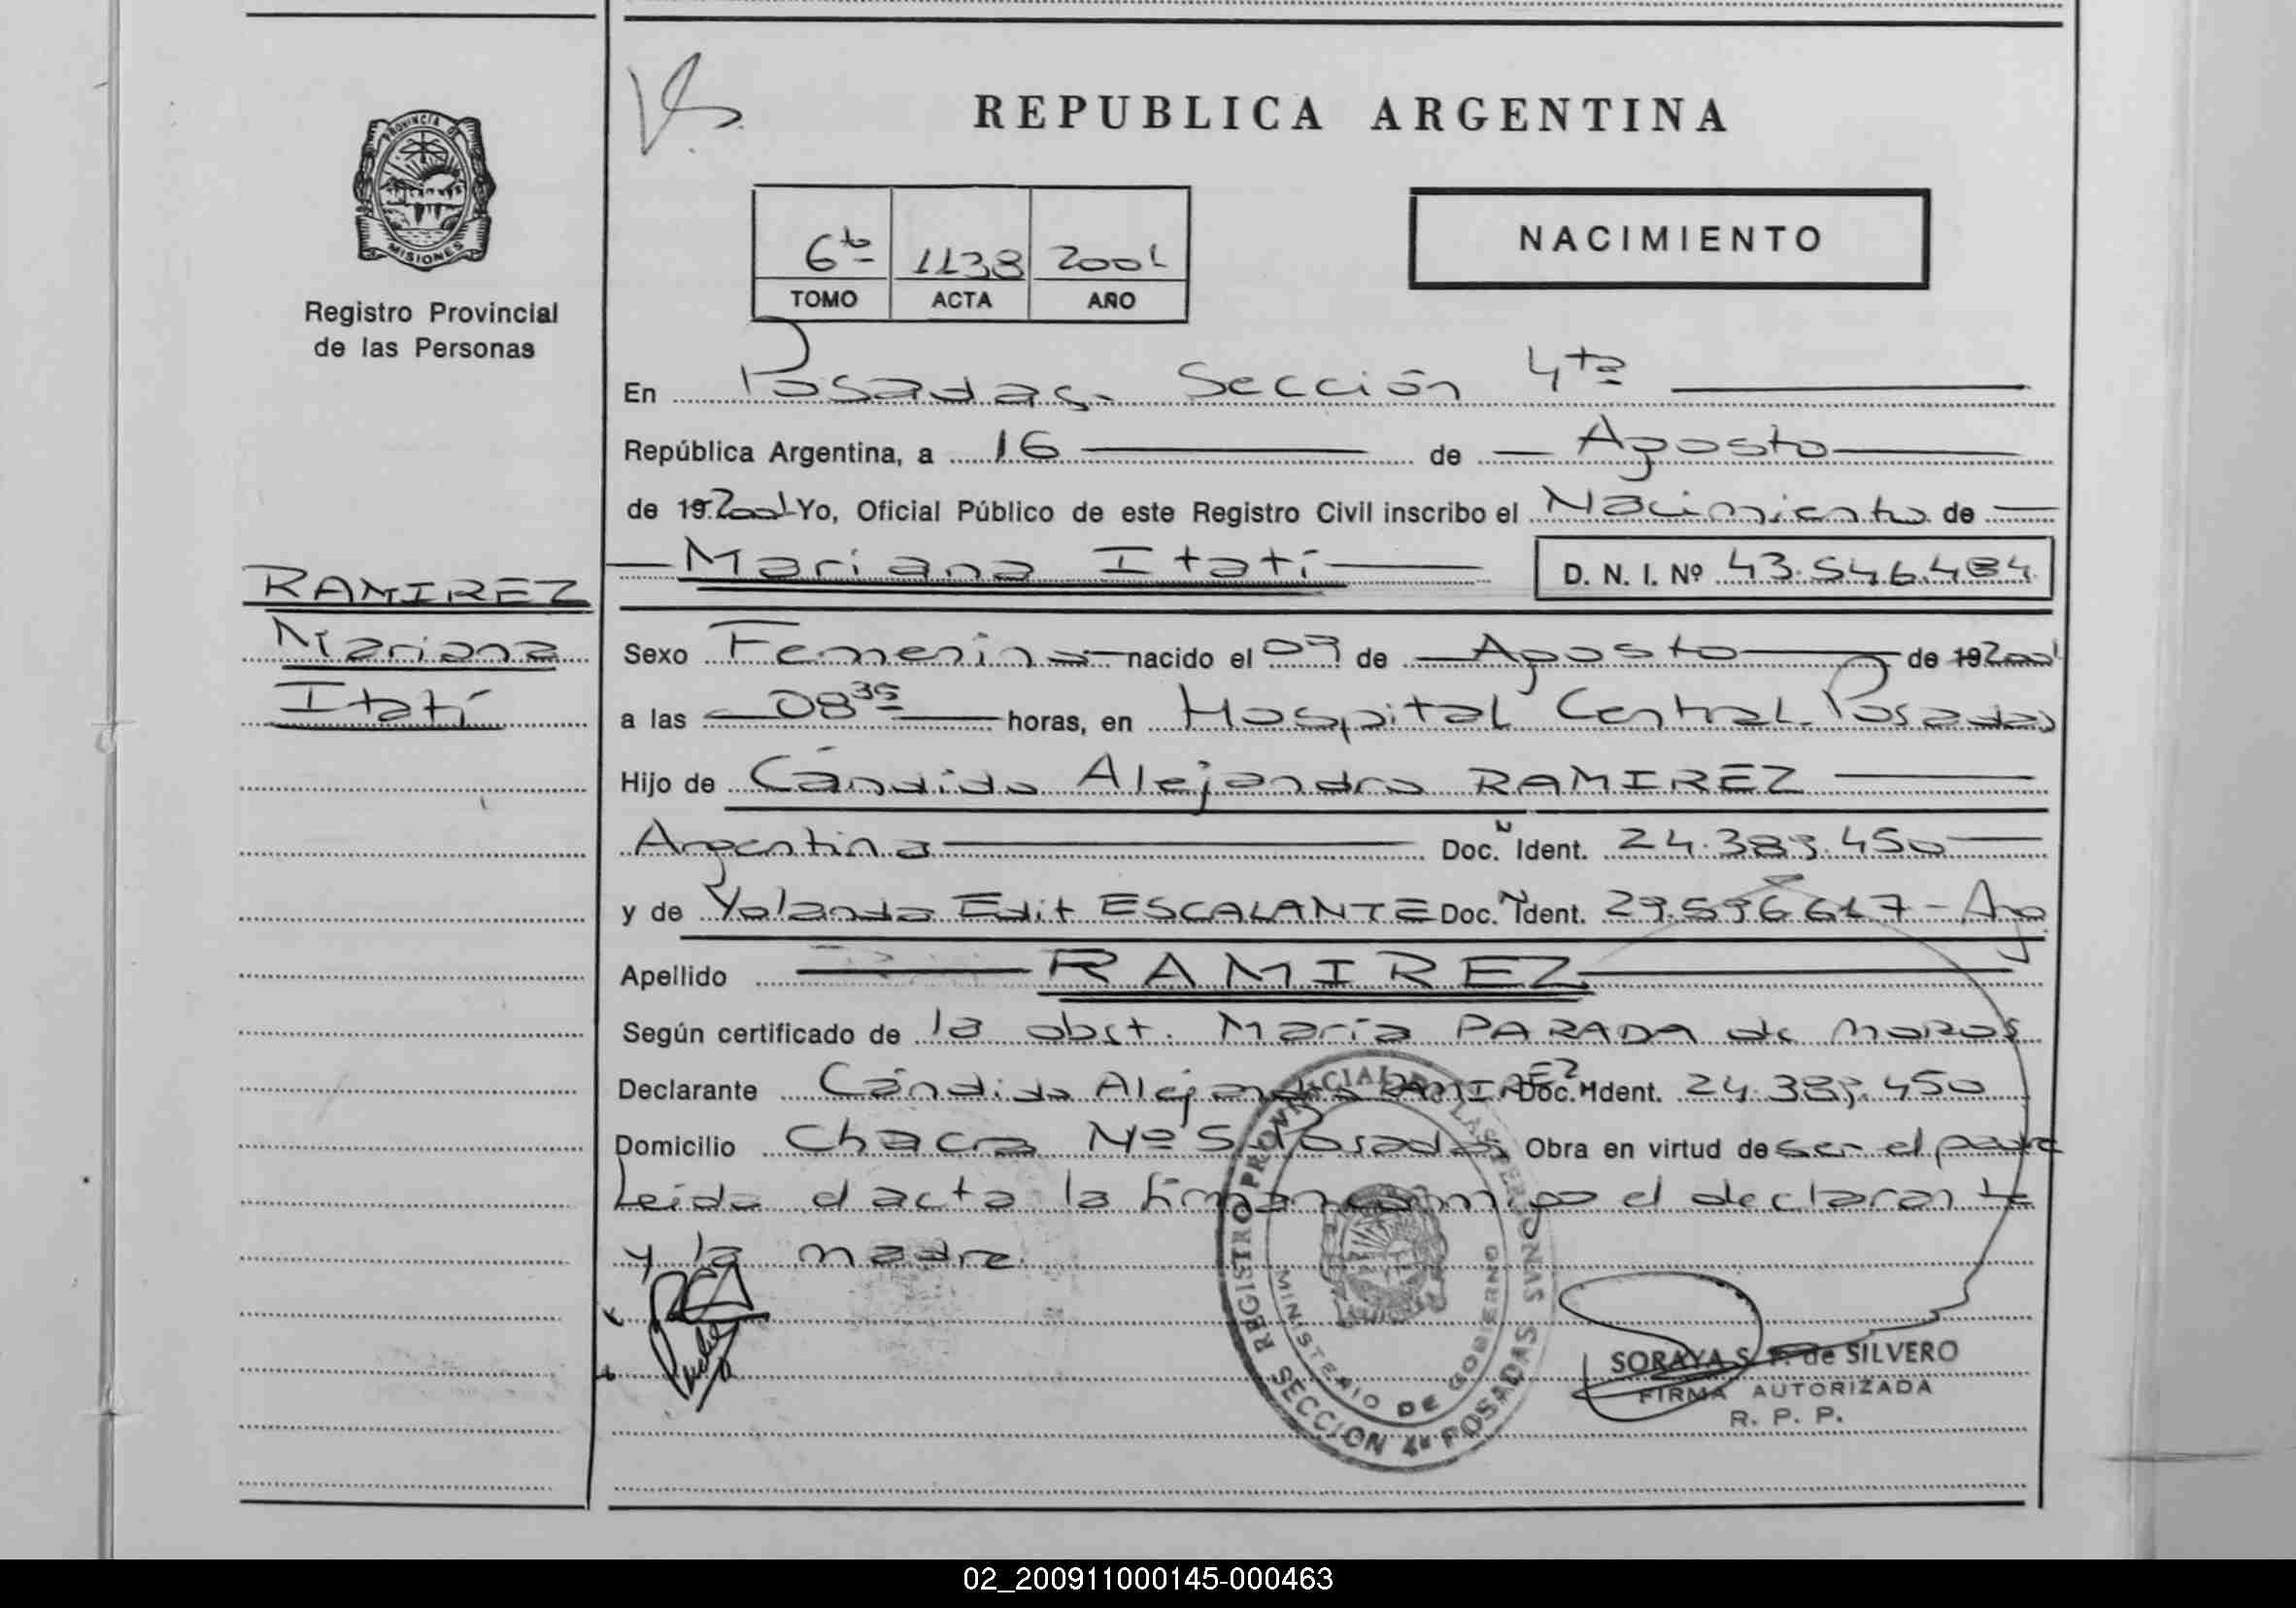 REPUBLICA ARGENTINA
PROVINCIA DE MISIONES
Registro Provincial
de las Personas
NACIMIENTO
6to 1138 2001
TOMO ACTA AÑO
En Posadas. Sección 4ta
República Argentina, a 16 de Agosto
de 19 2001 Yo, Oficial Público de este Registro Civil inscribo el Nacimiento de
Mariana Itatí D. N. I. Nº 43.546.484
RAMIREZ
Mariana
Itatí
Sexo Femenino nacido el 09 de Agosto de 19 2001
a las 08 35 horas, en Hospital Central. Posadas
Hijo de Cándido Alejandro RAMIREZ
Argentina Doc. N Ident. 24.383.450
y de Yolanda Edit ESCALANTE Doc. N Ident. 29.596617 - Arg
Apellido RAMIREZ
Según certificado de la obst. María PARADA de
Declarante Cándido Alejandro RAMIREZ Doc. Ident. 24.383.450
Domicilio Chacra Nº 5 Posadas, Obra en virtud de ser el padre
Leida el acta la firman conmigo el declarante
y la madre.
REGISTRO PROVINCIAL DE LAS PERSONAS
MINISTERIO DE GOBIERNO
SECCION 4ª POSADAS
SORAYA S. F. de SILVERO
FIRMA AUTORIZADA
R. P. P.
02_200911000145-000463